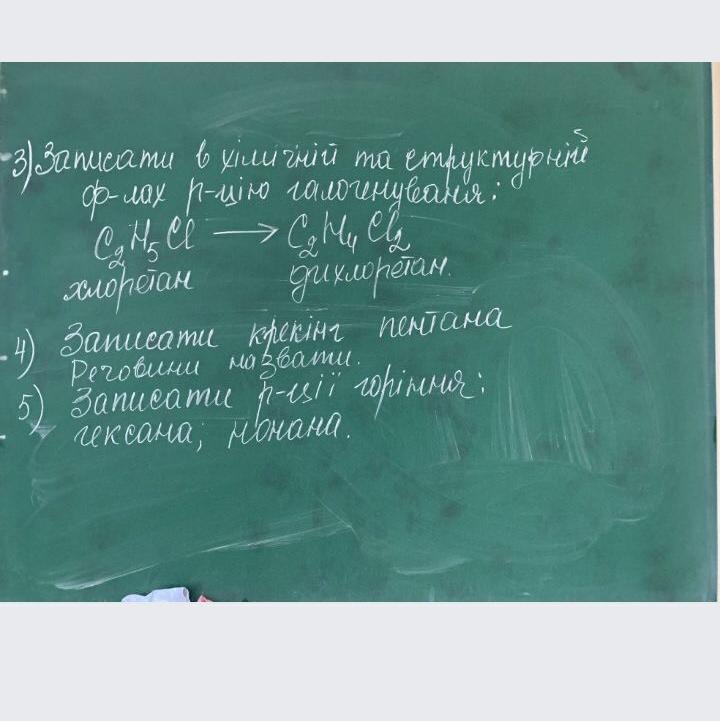 3) Записати в хімічній та структурній
ф-лах р-цію галогенуваня:
C₂H₅Cl → C₂H₄Cl₂
хлоретан дихлоретан.
4) Записати крекінг пентана
Речовини назвати.
5) Записати р-ції горіння:
гексана; нонана.